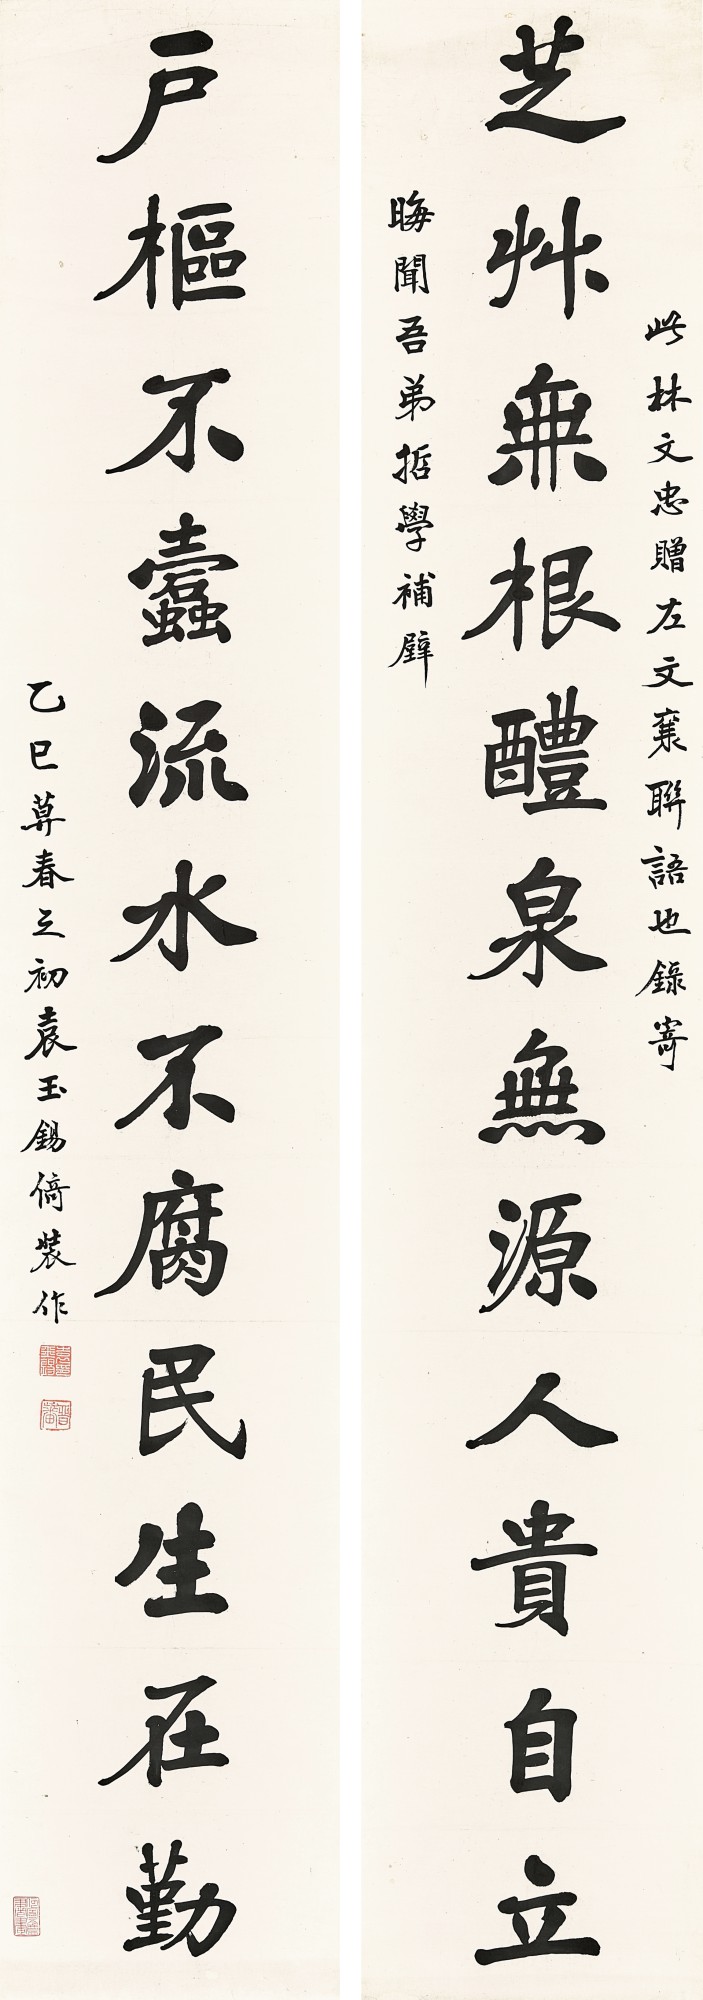 芝艸無根醴泉無源人貴自立
此林文忠贈左文襄聯語也錄寄
晦聞吾弟哲學補壁
戶樞不蠹流水不腐民生在勤
乙巳莫春之初袁玉錫倚裝作